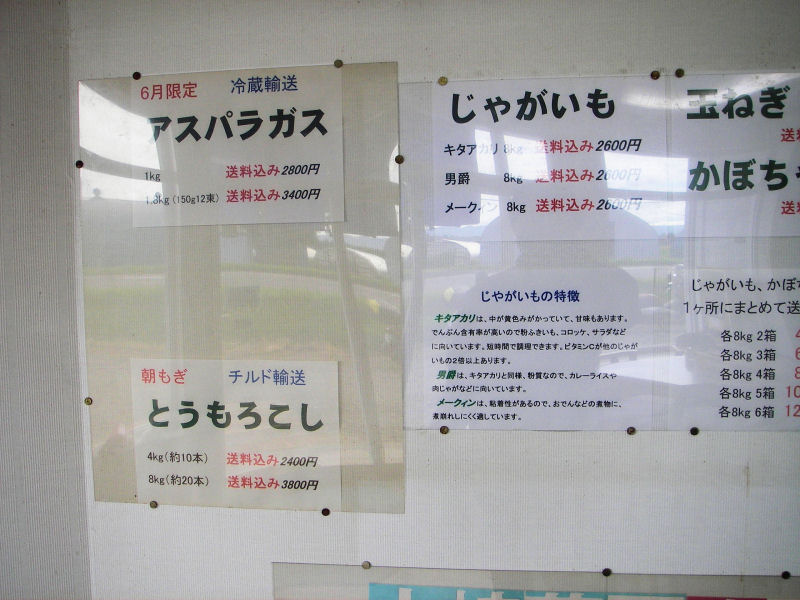 6月限定 冷蔵輸送
アスパラガス
1kg 送料込み 2800円
1.8kg (150g12束) 送料込み 3400円
朝もぎ チルド輸送
とうもろこし
4kg(約10本) 送料込み 2400円
8kg(約20本) 送料込み 3800円
じゃがいも
キタアカリ 8kg 送料込み 2600円
男爵 8kg 送料込み 2600円
メークィン 8kg 送料込み 2600円
じゃがいもの特徴
キタアカリは、中が黄色みがかっていて、甘味もあります。
でんぷん含有率が高いので粉ふきいも、コロッケ、サラダなど
に向いています。短時間で調理できます。ビタミンCが他のじゃが
いもの2倍以上あります。
男爵は、キタアカリと同様、粉質なので、カレーライスや
肉じゃがなどに向いています。
メークィンは、粘着性があるので、おでんなどの煮物に、
煮崩れしにくく適しています。
玉ねぎ
送料
かぼち
送料
じゃがいも、かぼ
1ヶ所にまとめて送
各8kg 2箱
各8kg 3箱
各8kg 4箱
各8kg 5箱 10
各8kg 6箱 12